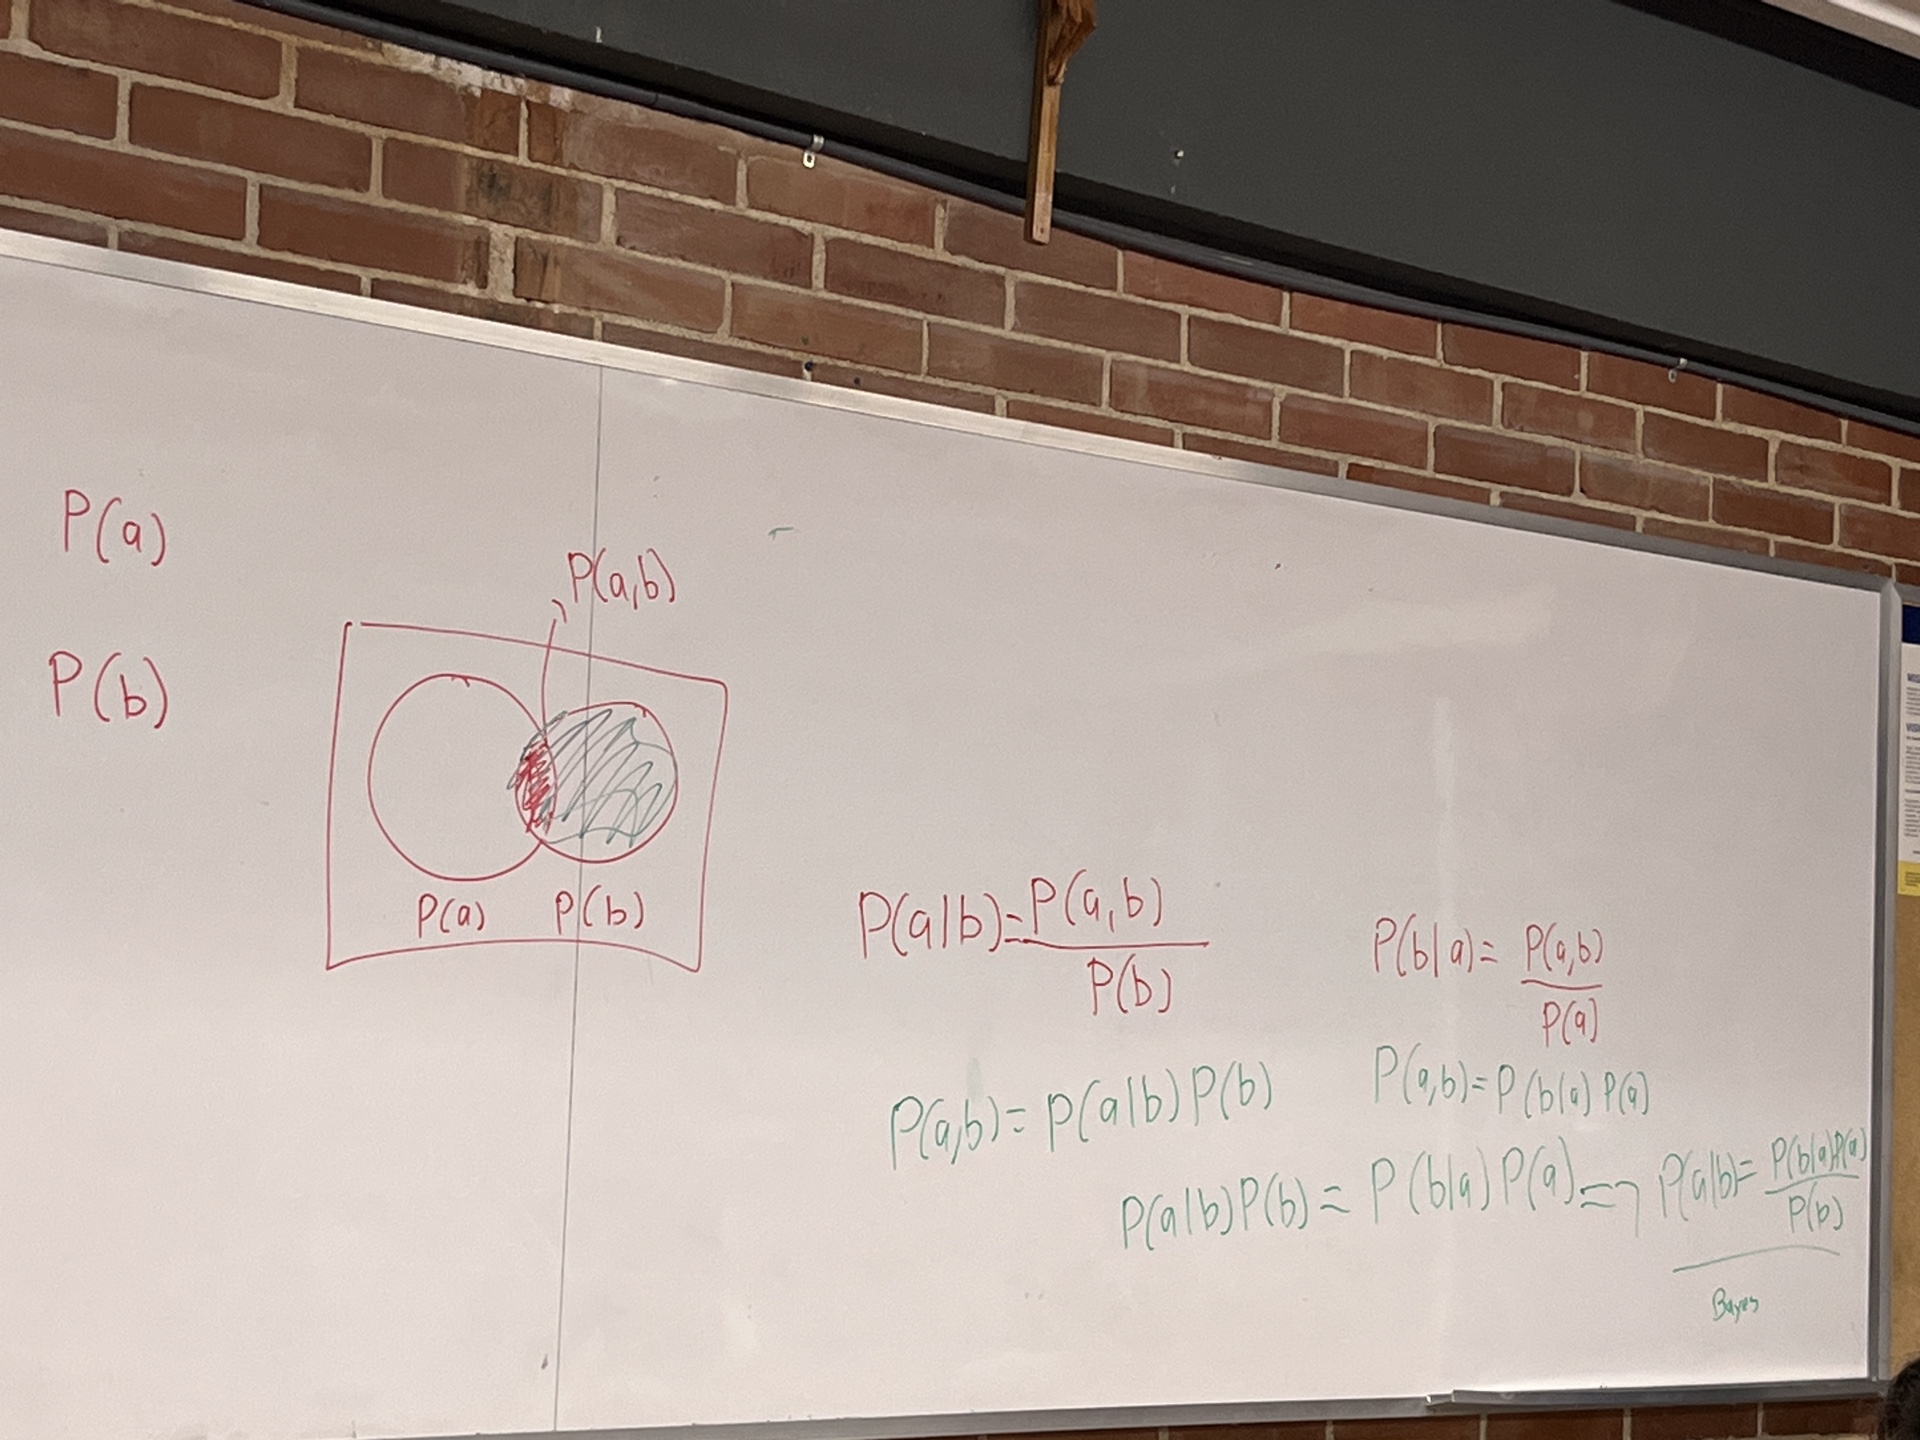 P(a)
P(b)
P(a,b)
P(a) P(b)
P(a|b)=P(a,b)/P(b)
P(b|a)=P(a,b)/P(a)
P(a,b)=P(a|b)P(b)
P(a,b)=P(b|a)P(a)
P(a|b)P(b)=P(b|a)P(a)=>P(a|b)=P(b|a)P(a)/P(b)
Bayes